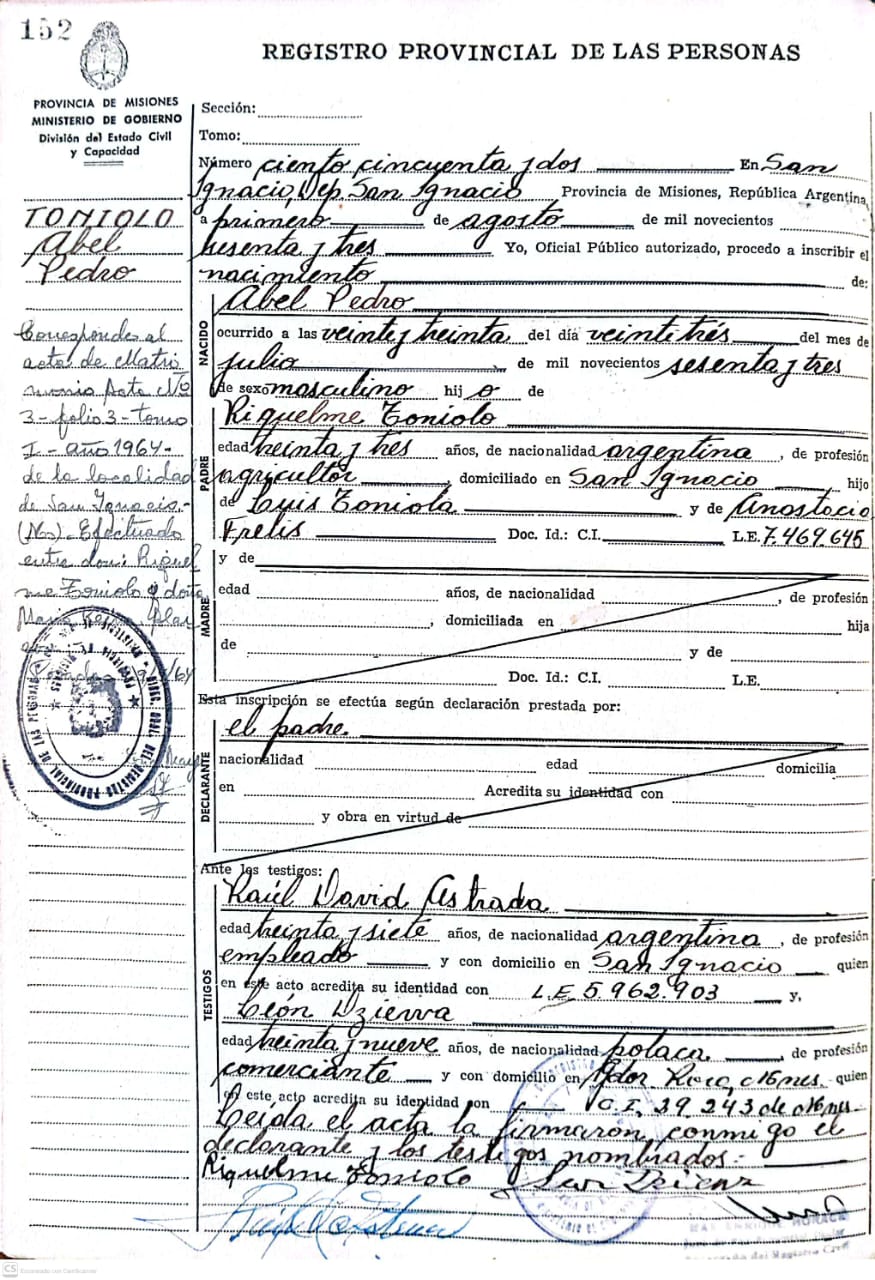 152
REGISTRO PROVINCIAL DE LAS PERSONAS
PROVINCIA DE MISIONES
MINISTERIO DE GOBIERNO
División del Estado Civil
y Capacidad
TONIOLO
Abel
Pedro
Corresponde al
acta de Matri
monio Acta Nº
3-folio 3-tomo
I-año 1964-
de la localidad
de San Ignacio.-
(Mos). Efectuado
entre don: Riquel
me Toniolo y doña
Sección:
Tomo:
Número ciento cincuenta y dos En San
Ignacio, Dep. San Ignacio Provincia de Misiones, República Argentina,
a primero de agosto de mil novecientos
sesenta y tres Yo, Oficial Público autorizado, procedo a inscribir el
nacimiento de:
NACIDO
Abel Pedro
ocurrido a las veinte y treinta del día veintitrés del mes de
julio de mil novecientos sesenta y tres
de sexo masculino hij o de
PADRE
Riquelme Toniolo
edad treinta y tres años, de nacionalidad argentina, de profesión
agricultor, domiciliado en San Ignacio hijo
de Luis Toniolo y de Anastacia
Frelis Doc. Id.: C.I. L.E. 7.469.645
MADRE
y de
edad años, de nacionalidad, de profesión
, domiciliada en hija
de y de
Doc. Id.: C.I. L.E.
Esta inscripción se efectúa según declaración prestada por:
DECLARANTE
el padre.
nacionalidad edad domicilia
en Acredita su identidad con
y obra en virtud de
Ante los testigos:
TESTIGOS
Raúl David Astrada
edad treinta y siete años, de nacionalidad argentina, de profesión
empleado y con domicilio en San Ignacio quien
en este acto acredita su identidad con L.E. 5.962.903 y,
León Dzierva
edad treinta y nueve años, de nacionalidad polaca, de profesión
comerciante y con domicilio en Gdor. Roca, Mnes. quien
en este acto acredita su identidad con C.I. 39.243 de Mnes.
Leída el acta la firmaron conmigo el
declarante y los testigos nombrados.-
Riquelme Toniolo
CS Escaneado con CamScanner